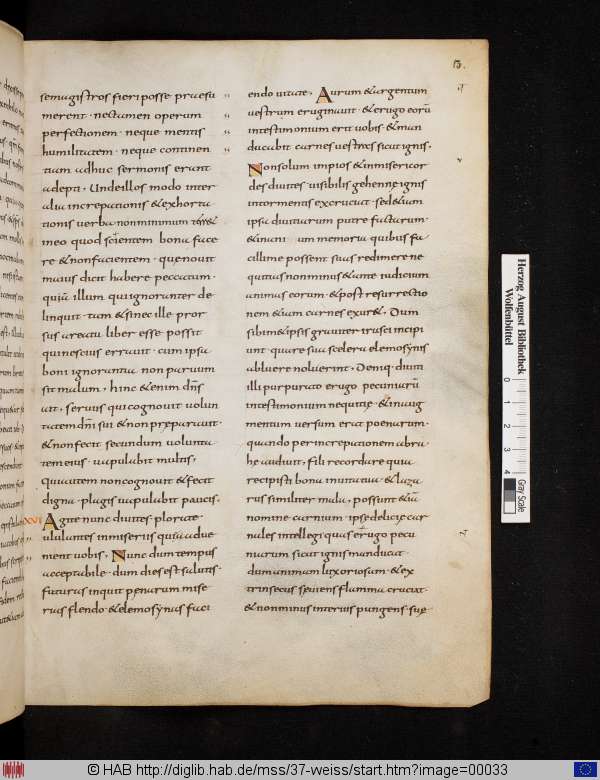 13.
semagistros fieri posse praesu
merent · nec tamen operum
perfectionem · neque mentis
humilitatem · neque continen
tiam adhuc sermonis erant
adepti · Unde illos modo inter
alia increpationis & exhorta
tionis verba non minimum terr&
in eo quod scientem bona face
re & non facientem · quenouit
maius dicit habere peccatum ·
quam illum qui ignoranter de
linquit · tam & si nec ille pror
sus a reatu liber esse possit
qui nescius errauit · cum ipsa
boni ignorantia non paruum
sit malum · hinc & enim dns
ait · seruus qui cognouit volun
tatem dni sui & non praeparauit ·
& non fecit secundum volunta
tem eius · vapulabit multis ·
qui autem non cognouit & fecit
digna · plagis vapulabit paucis ·
XVI Agite nunc diuites plorate
ululantes in miseriis quae adue
nient vobis · Nunc dum tempus
acceptabile · dum dies est salutis ·
futuras inquit penarum mise
rias flendo & elemosynas faci
endo vitate · Aurum & argentum
vestrum eruginauit · & erugo eoru
in testimonium erit vobis & man
ducabit carnes vestras sicut ignis ·
Non solum impios & inmisericor
des diuites visibilis gehennae ignis
in tormentis excruciat · sed & iam
ipsa diuitiarum putre facturum ·
& inani um memoria quibus fa
cillime possent suas redimere ne
quitias non minus & ante iudicium
animas eorum · & post resurrectio
nem & iam carnes exur& · Dum
sibim & ipsis grauiter irasci incipi
unt quare sua scelera elemosynis
abluere noluerint · Deniq. diuiti
illi purpurato erugo pecuniaru
in testimonium nequitiae · & in aug
mentum versum erat poenarum ·
quando per increpationem abra
he audiuit · fili recordare quia
recipisti bona in uita tua & laza
rus similiter mala · possunt & ia
nomine carnium ipsae deliciae car
nales intellegi quas erugo pecu
niarum sicut ignis manducat
dum animam luxoriosam · & ex
trinsecus saeuiens flamma cruciat
& non minus interius pungens suae
Herzog August Bibliothek
Wolfenbüttel
0 1 2 3 4
Gray Scale
© HAB http://diglib.hab.de/mss/37-weiss/start.htm?image=00033